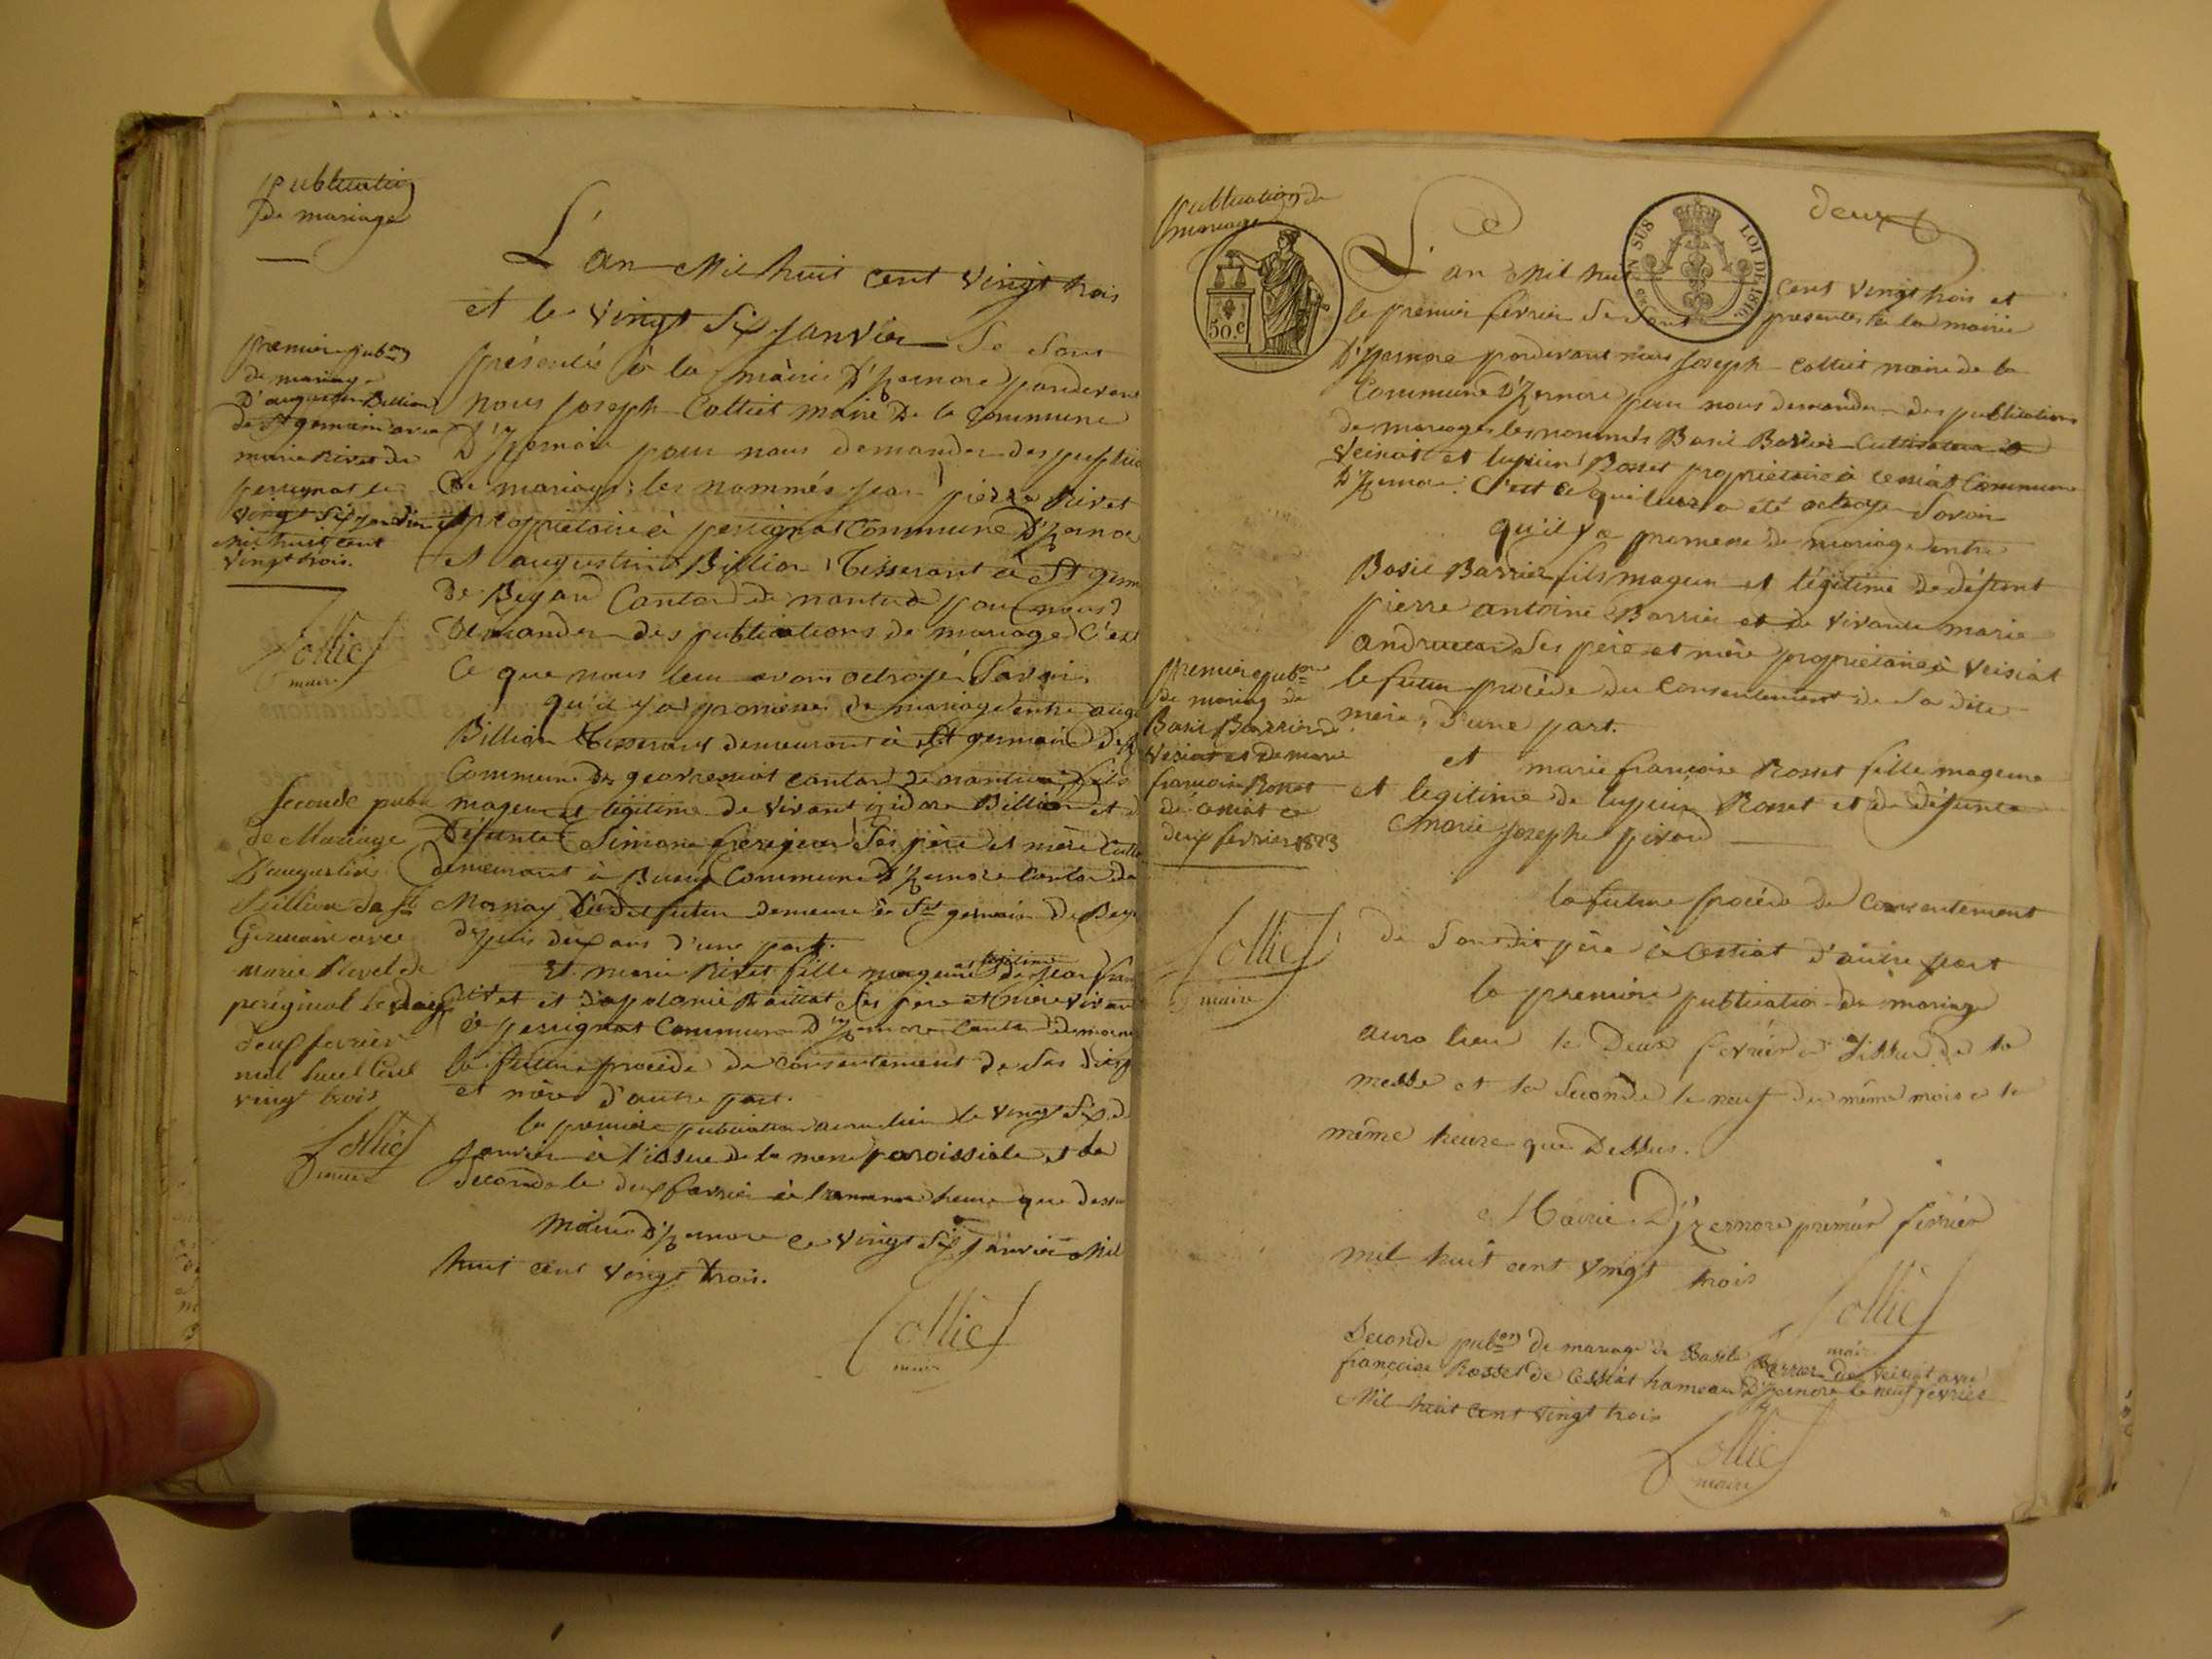 publication
de mariage
L'an Mil huit cent vingt trois
et le vingt six Janvier Se Sont
présentés à la mairie D'Izernore pardevant
nous Joseph Colliet maire De la Commune
D'Izernore pour nous demander des publica
De mariage; les nommés jean pierre Rivet
propriétaire à perignat Commune D'Izernore
et augustin Billion Tisserant à St germ
De Beyard Canton de nantua pour nous
Demander des publications de mariage C'est
Ce que nous leur avons octroyé Savoir
qu'il y a promesse de mariage entre augu
Billion Tisserant demeurant à St germain de
Commune de geovressiat canton de nantua, fils
mageur et légitime de vivant izidore Billion et d
Défunte Simone ses père et mère
demeurant à Bussy Commune D'Izernore Canton de
Mornay Ledit futur demeure à St germain De Bey
depuis deux ans d'une part.
Et marie Rivet fille mageure et légitime de jean fran
Rivet et D'apolonie Maillat ses père et mère vivant
à perignat Commune D'Izernore Canton de mornay
la future procède du consentement de ses dits p
et mère d'autre part.
la première publication aura lieu le vingt six d
Janvier à l'issue de la messe paroissiale et la
Seconde le deux fevrier à la meme heure que dessu
Mairie D'Izernore ce vingt six Janvier Mil
huit cent vingt trois.
Colliet
maire
première pubon
de mariage
D'augustin Billion
de St germain avec
marie Rivet de
perignat le
vingt six janvier
mil huit cent
vingt trois.
Colliet
maire
Seconde publi
de Mariage
D'augustin
Billion de St
Germain avec
marie Rivet de
perignat le
deux fevrier
mil huit Cent
vingt trois
Colliet
maire
publication de
mariage
50.c
EN SUS
LOI DE 1816.
deux
L'an Mil huit cent vingt trois et
le premier fevrier Se Sont présentés à la mairie
D'Izernore pardevant nous Joseph Colliet maire de la
Commune D'Izernore pour nous demander des publications
de mariages les nommés Basil Barrier Cultivateur à
Veisiat et lupicin Rosset propriétaire à Cessiat Commune
D'Izernore. C'est ce qui leur a été octroyé Savoir
qu'il y a promesse de mariage entre
Basil Barrier fils mageur et légitime de défunt
pierre antoine Barrier et de vivante marie
ses père et mère propriétaire à Veisiat
le futur procède du Consentement de Sa dite
mère, d'une part.
et marie françoise Rosset fille mageure
et legitime de lupicin Rosset et de défunte
Marie Josephe pivard
la future procède du Consentement
de Son dit père à Cessiat d'autre part
la premiere publication de mariage
aura lieu le Deux fevrier à l'issue de la
messe et la Seconde le neuf du même mois à la
même heure que Dessus.
Mairie D'izernore premier fevrier
mil huit cent vingt trois
Colliet
maire
premiere pubon
de mariag de
Basil Barrier de
Veisiat et de marie
françoise Rosset
de Cessiat ce
deux fevrier 1823
Colliet
maire
Seconde pubon de mariage de Basile Barrier de Veisiat avec
françoise Rosset de Cessiat hameau D'Izernore le neuf fevrier
Mil huit cent vingt trois
Colliet
maire